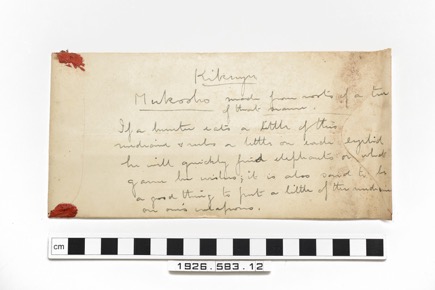 Kikuyu
Mukoobo made from roots of a tree
of that name.
If a hunter eats a little of this
medicine & rubs a little on each eyelid
he will quickly find elephants or what
game he wishes; it is also said to be
a good thing to put a little of the medicine
on one's weapons.
cm
1926.583.12